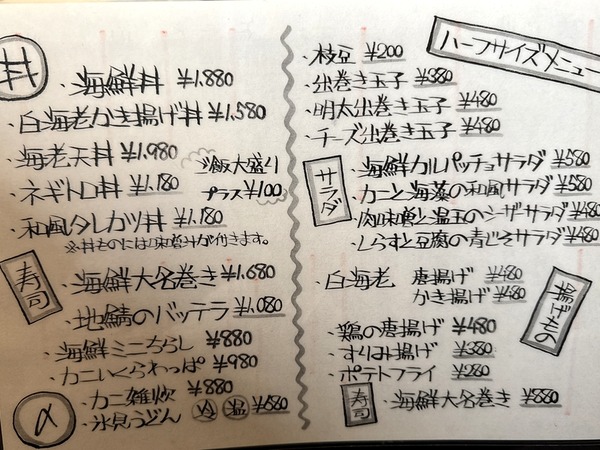 丼
・海鮮丼 ¥1.880
・白海老かき揚げ丼 ¥1,580
・海老天丼 ¥1,980
ご飯大盛り
プラス¥100
・ネギトロ丼 ¥1,180
・和風タレカツ丼 ¥1,180
※丼ものには味噌汁が付きます。
寿司
・海鮮大名巻き ¥1,680
・地鯖のバッテラ ¥1,080
・海鮮ミニちらし ¥880
・カニいくらわっぱ ¥980
〆
・カニ雑炊 ¥880
・氷見うどん 冷 温 ¥680
ハーフサイズメニュー
・枝豆 ¥200
・出巻き玉子 ¥380
・明太出巻き玉子 ¥480
・チーズ出巻き玉子 ¥480
サラダ
・海鮮カルパッチョサラダ ¥580
・カニと海藻の和風サラダ ¥580
・肉味噌と温玉のシーザーサラダ ¥480
・しらすと豆腐の青じそサラダ ¥480
揚げもの
・白海老 唐揚げ ¥480
かき揚げ ¥480
・鶏の唐揚げ ¥480
・すりみ揚げ ¥380
・ポテトフライ ¥280
寿司
・海鮮大名巻き ¥880